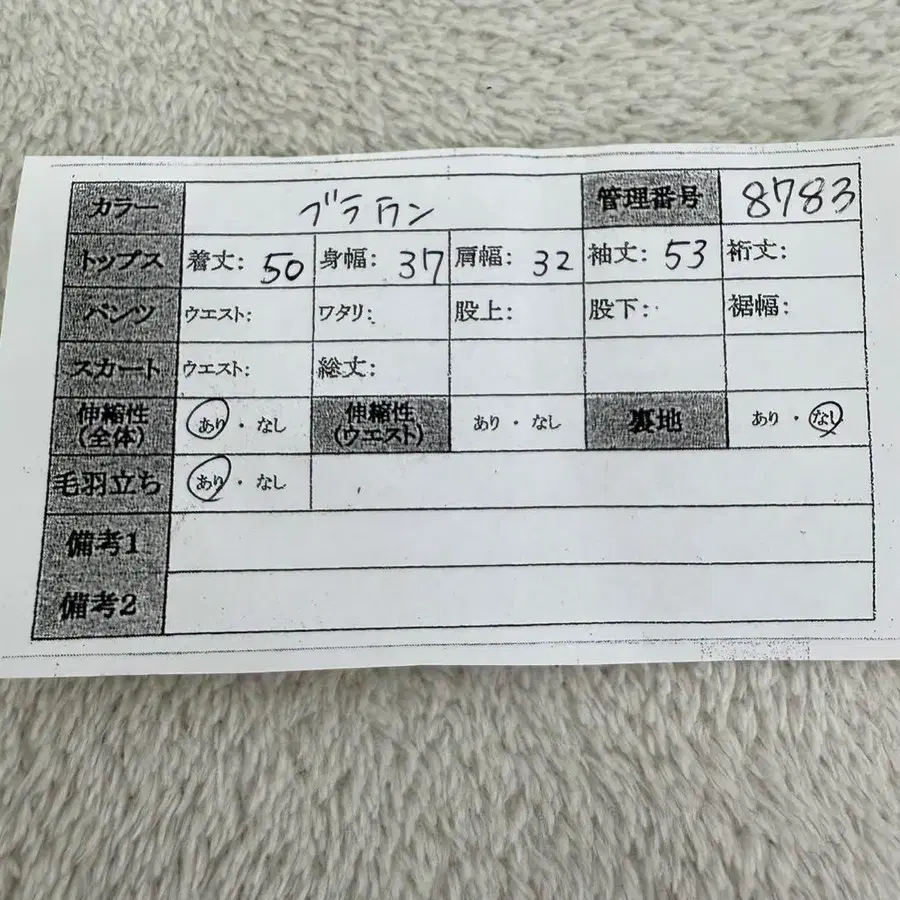 カラー ブラウン 管理番号 8783
トップス 着丈: 50 身幅: 37 肩幅: 32 袖丈: 53 裄丈:
パンツ ウエスト: ワタリ: 股上: 股下: 裾幅:
スカート ウエスト: 総丈:
伸縮性(全体) あり・なし 伸縮性(ウエスト) あり・なし 裏地 あり・なし
毛羽立ち あり・なし
備考1
備考2